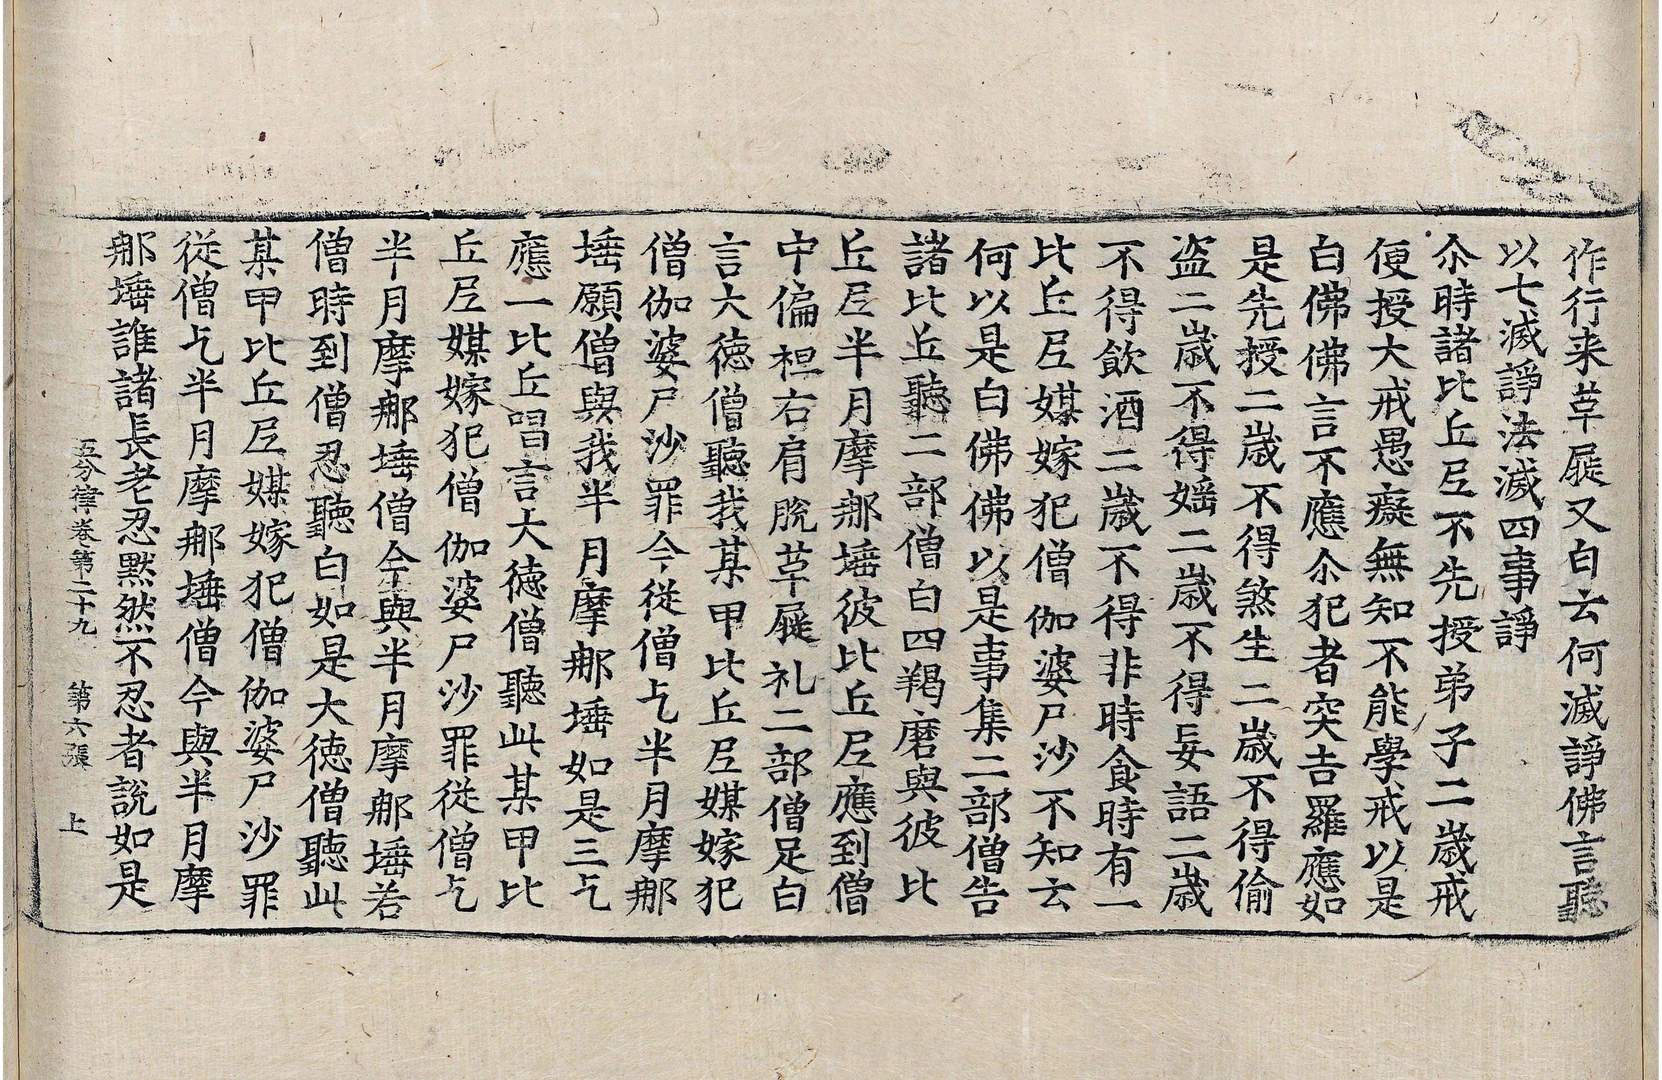 作行来草屣又白云何滅諍佛言聽
以七滅諍法滅四事諍
尒時諸比丘尼不先授弟子二歲戒
便授大戒愚癡無知不能學戒以是
白佛佛言不應尒犯者突吉羅應如
是先授二歲不得煞生二歲不得偷
盜二歲不得婬二歲不得妄語二歲
不得飲酒二歲不得非時食時有一
比丘尼媒嫁犯僧伽婆尸沙不知云
何以是白佛佛以是事集二部僧告
諸比丘聽二部僧白四羯磨與彼比
丘尼半月摩那埵彼比丘尼應到僧
中偏袒右肩脫草屣礼二部僧足白
言大德僧聽我某甲比丘尼媒嫁犯
僧伽婆尸沙罪今從僧乞半月摩那
埵願僧與我半月摩那埵如是三乞
應一比丘唱言大德僧聽此某甲比
丘尼媒嫁犯僧伽婆尸沙罪從僧乞
半月摩那埵僧今與半月摩那埵若
僧時到僧忍聽白如是大德僧聽此
某甲比丘尼媒嫁犯僧伽婆尸沙罪
從僧乞半月摩那埵僧今與半月摩
那埵誰諸長老忍默然不忍者說如是
五分律卷第二十九 第六張 上